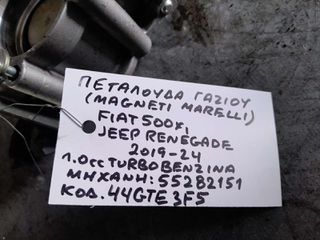 ΠΕΤΑΛΟΥΔΑ ΓΑΖΙΟΥ
(MAGNETI MARELLI)
FIAT 500X,
JEEP RENEGADE
2019-24
1.0cc TURBOBENZINA
ΜΗΧΑΝΗ: 55282151
ΚΩΔ. 44GTE3F5